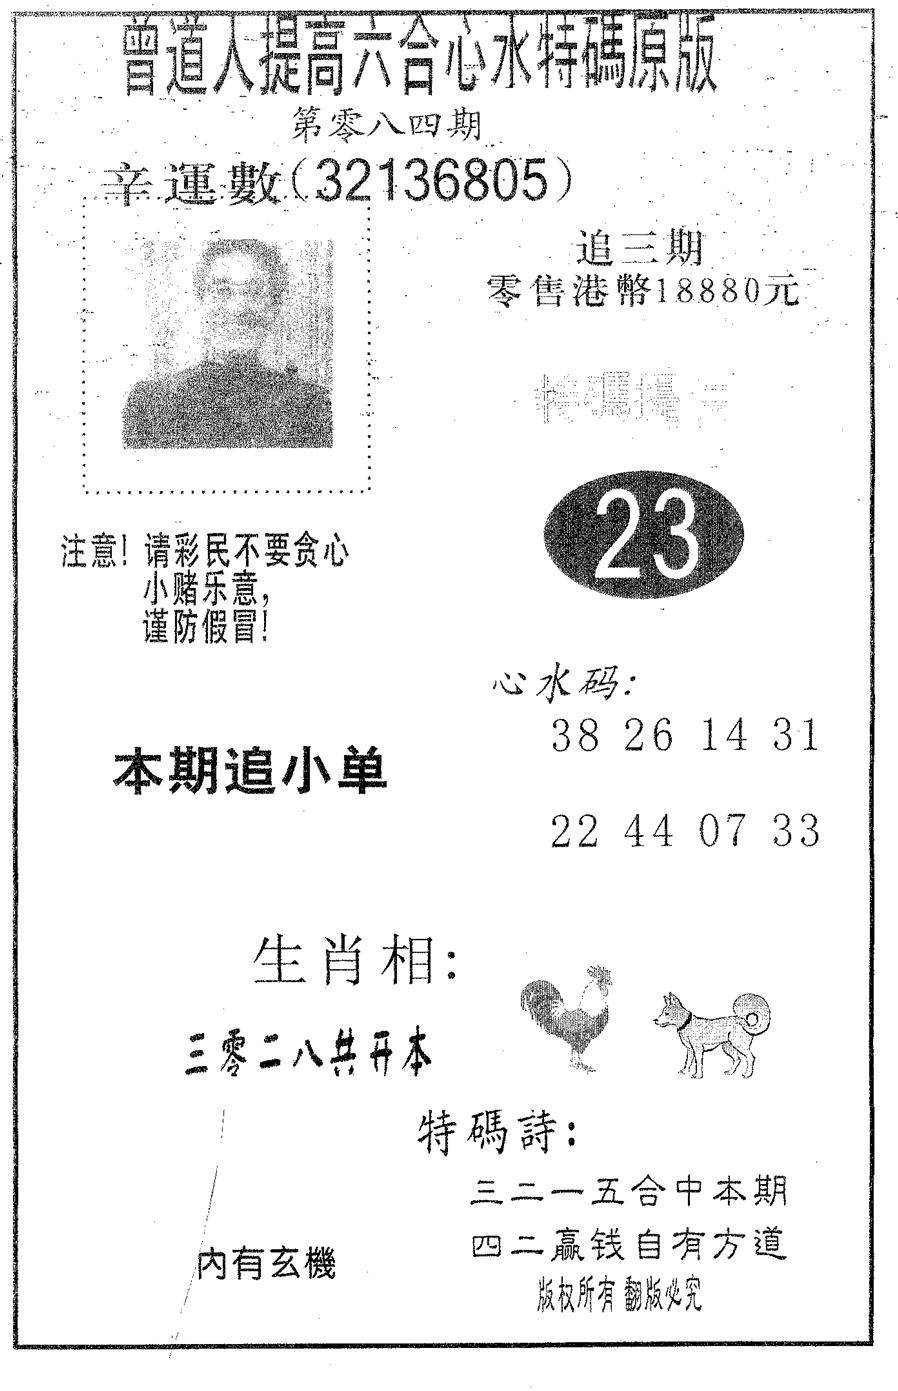 曾道人提高六合心水特碼原版
第零八四期
辛運數(32136805)
追三期
零售港幣18880元
特碼提
23
注意！请彩民不要贪心
小赌乐意，
谨防假冒！
心水码:
38 26 14 31
本期追小单
22 44 07 33
生肖相:
三零二八共开本
特碼詩:
三二一五合中本期
四二赢钱自有方道
内有玄機
版权所有 翻版必究